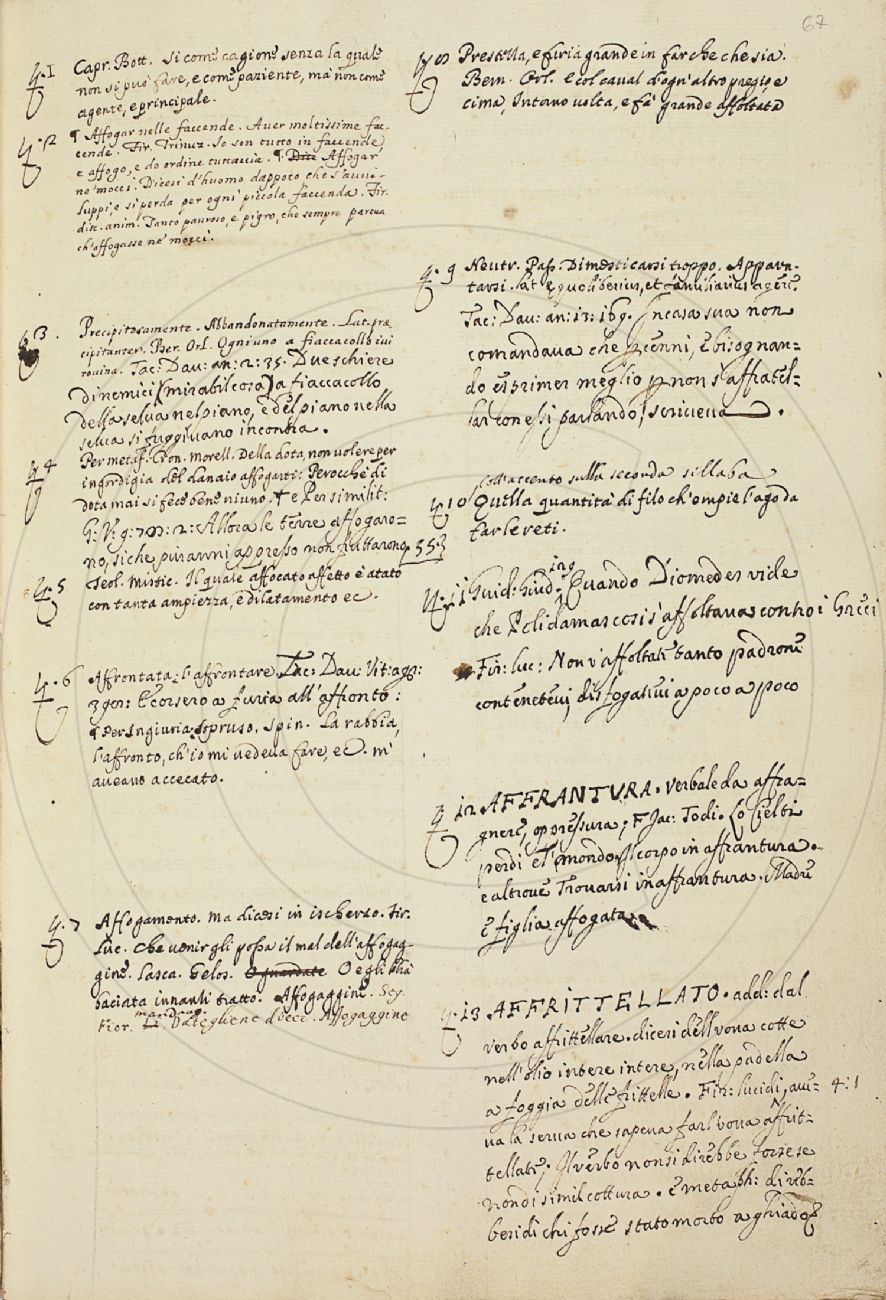 67
4. 1 Capr. Bott. Si come cagione senza la quale
non si può fare, e come paziente, ma non come
agente, e principale.
4. 2 ¶ Affogar nelle faccende. Aver moltissime fac-
cende. Fir. Trinuz. Io son tutto in faccende,
e affogo, e do ordine tuttavia. ¶ Dite Affogar
ne' mocci. Dicesi d'huomo dappoco che s'avvi-
luppi, e si perda per ogni piccola faccenda. Fir.
disc. anim. Tanto pauroso, e pigro, che sempre pareva
ch'affogasse ne' mocci.
3. Precipitosamente. Abbandonatamente. Lat. præ
cipitanter. Ber. Orl. Ogni uno a fiaccacollo ivi
rovina. Tac: Dav: an: 2: 35. Due schiere
di nemici (mirabil cosa) a fiaccacollo,
della selva nel piano, e del piano nella
selva si fuggivano incontra.
4. 4 Per metaf. Cron. morell. Della dota, non volere per
ingordigia del danaio affogarti: Perocchè di
dota mai si fece bene niuno. † e Per similit:
G: V: 9: 2: Allora le terre affogaro=
no, siche più anni appresso non fruttarono 353
4. 5 Teol. Mistic. Il quale affocato affetto è stato
con tanta ampiezza, e dilatamento ec.
4. 6 Affrontata; l'affrontare Tac: Dav: Vit: agr:
390: E corsero a furia all'affronto:
¶ Per Ingiuria, Sopruso. Spin. La rabbia,
l'affronto, ch'io mi vedeva fare, ec. m'
aveano accecato.
4. 7 Affogamento. ma dicesi in ischerzo. Fir.
Luc. Che venir gli possa il mal dell'affogag-
gine. Lasca. Gelos. O guardate O egli l'ha
baciata innanzi tratto. Affogaggine. Seg.
Fior. mand. Dategliene dieci. Affogaggine
4. 8 Prestezza, e furia grande in far che che sia.
Bern. Orl. E col caval d'ogn'altro pregio, e
cima, Intorno volta, e fa' grande affoltata
4. 9 Neutr. Pass. Dimesticarsi troppo. Apparen-
tarsi. Lat. æquo liberius, et familiarius agere.
Tac: Dav: an: 13: 169. In casa sua non
comandava che per cenni, e bisognan=
do esprimer meglio per non s'affratel=
lar con essi parlando, scriveva.
coll'accento sulla seconda sillaba
4. 10 Quella quantità di filo ch'empie l'ago da
far le reti.
4. 11 Guid: Giud: 129 Quando Diomedes vide
che Polidamas così s'affoltava contro i Greci
Fir: luc: Non v'affoltate tanto padrone
contenetevi, disfogatevi a poco a poco
4. 12 AFFRANTURA. Verbale da affra=
gnere, oppressura; F. Jac: Todi. Lo Ciel ti
perdi e'l mondo, Il corpo in affrantura.
e altrove Trovarsi in affrantura. Madre
e figlia affogata
4. 13 AFFRITTELLATO. add: dal
verbo affrittellare. dicesi dell'uova cotte
nell'olio intere intere, nella padella
a foggia delle frittelle. Fir: lucidi, avè= 4:1
va la serva che sapeva far l'uova affrit=
tellate; Il verbo non si direbbe forse se
non di simil cottura. e metaph: direb=
besi di chi fosse stato morto a ghiado